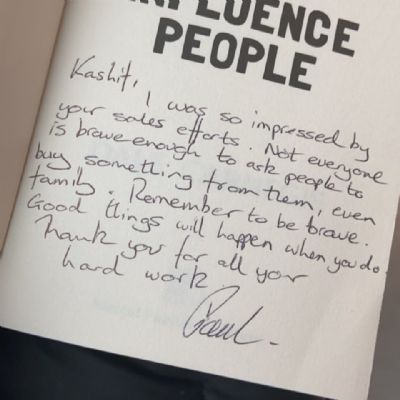 INFLUENCE
PEOPLE
Kashif,
I was so impressed by
your sales efforts. Not everyone
is brave enough to ask people to
buy something from them, even
family. Remember to be brave.
Good things will happen when you do.
Thank you for all your
hard work
Paul.